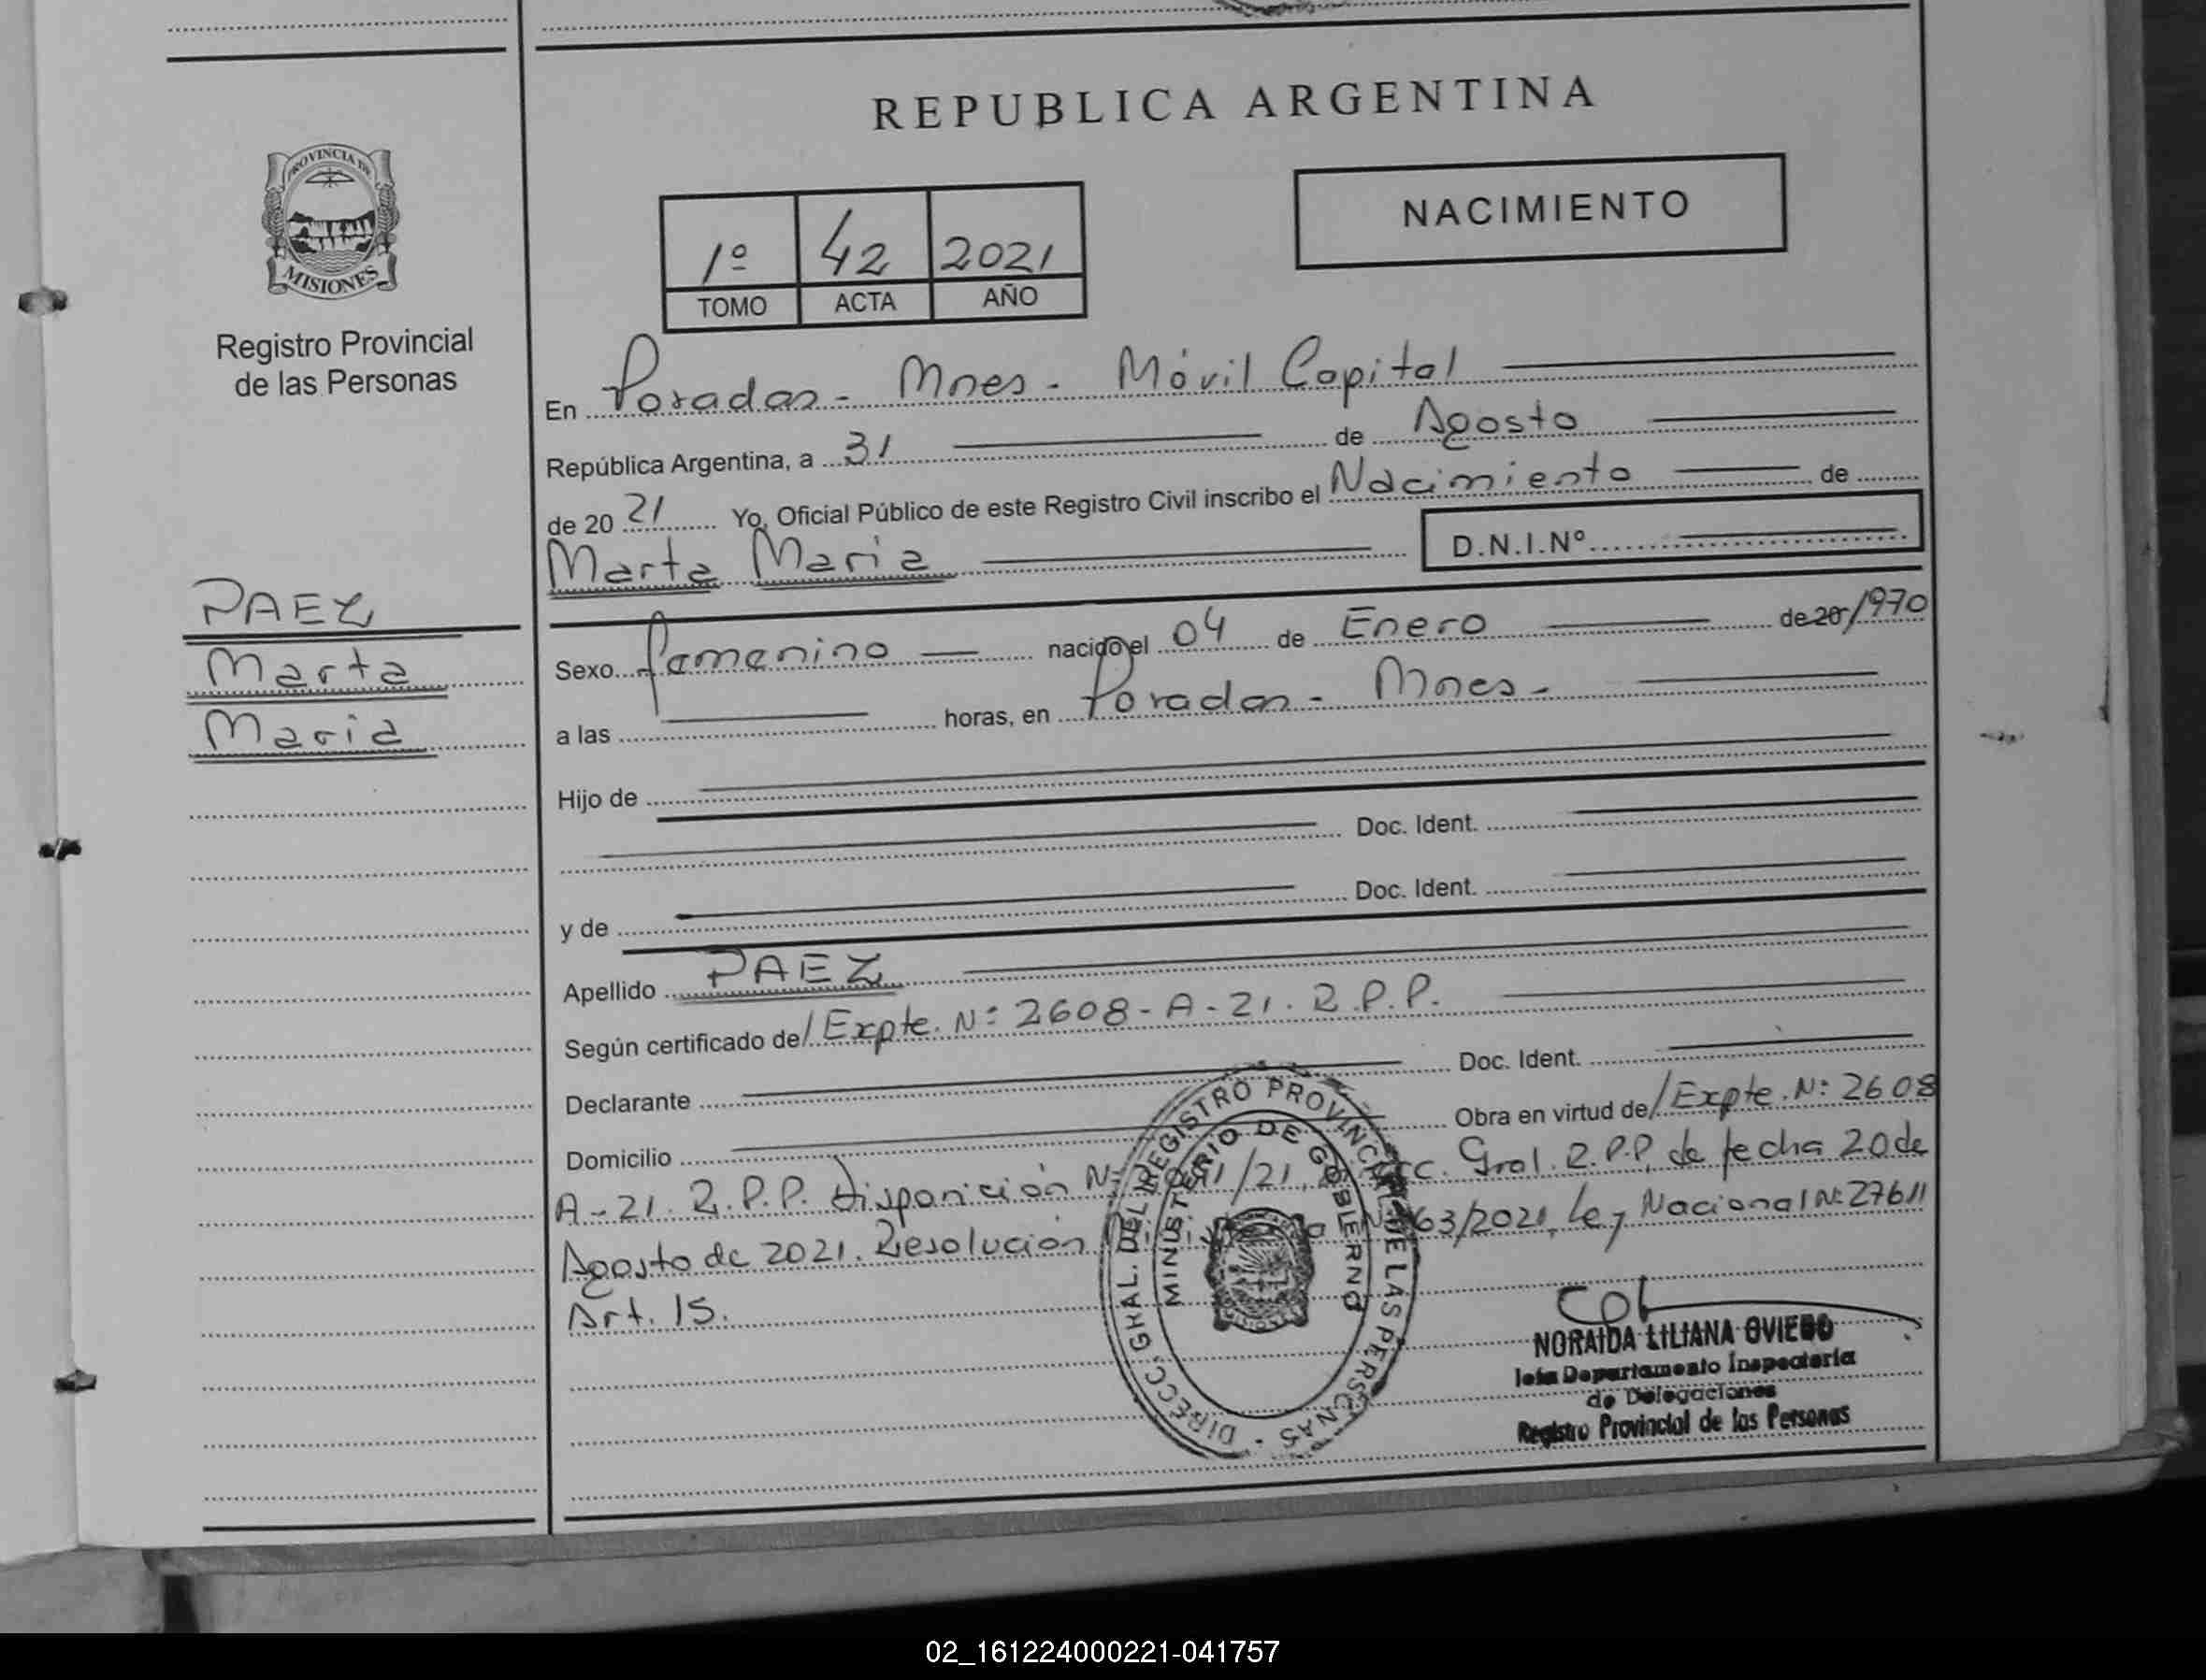 REPUBLICA ARGENTINA
NACIMIENTO
1º 42 2021
TOMO ACTA AÑO
PROVINCIA DE
MISIONES
Registro Provincial
de las Personas
PAEZ
Marta
Maria
En Posadas - Mnes - Móvil Capital
República Argentina, a 31 de Agosto
de 20 21 Yo, Oficial Público de este Registro Civil inscribo el Nacimiento de
Marta Maria D.N.I.Nº
Sexo femenino nacido el 04 de Enero de 20 1970
a las horas, en Posadas - Mnes -
Hijo de
Doc. Ident.
y de Doc. Ident.
Apellido PAEZ
Según certificado de/ Expte. Nº 2608 - A - 21. R.P.P.
Declarante Doc. Ident.
Domicilio Obra en virtud de/ Expte. Nº 2608
A - 21. R.P.P. Disposición /21, Gral. R.P.P. de fecha 20 de
Agosto de 2021. Resolución 63/2021, Ley Nacional Nº 27611
Art. 15.
DIRECC. GRAL. DEL REGISTRO PROVINCIAL DE LAS PERSONAS
MINISTERIO DE GOBIERNO
NORAIDA LILIANA OVIEDO
Jefa Departamento Inspectoria
de Delegaciones
Registro Provincial de las Personas
02_161224000221-041757